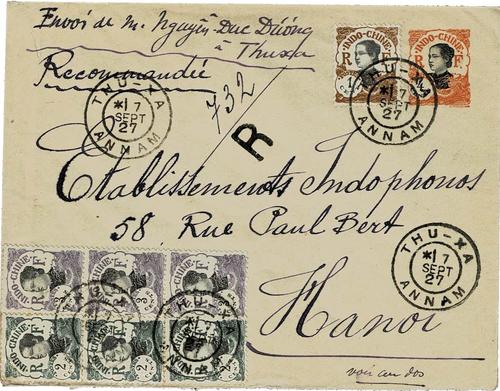 Envoi de M. Nguyên Duc Duong
à Thuxa
Recommandée
732
R
INDO-CHINE
R F
INDO-CHINE
R F
THU-XA
*17
SEPT
27
ANNAM
THU-XA
*17
SEPT
27
ANNAM
Etablissements Indophonos
58, Rue Paul Bert
Hanoi
THU-XA
*17
SEPT
27
ANNAM
INDO-CHINE
R F
INDO-CHINE
R F
INDO-CHINE
R F
INDO-CHINE
R F
2
INDO-CHINE
R F
2
INDO-CHINE
R F
2
voir au dos